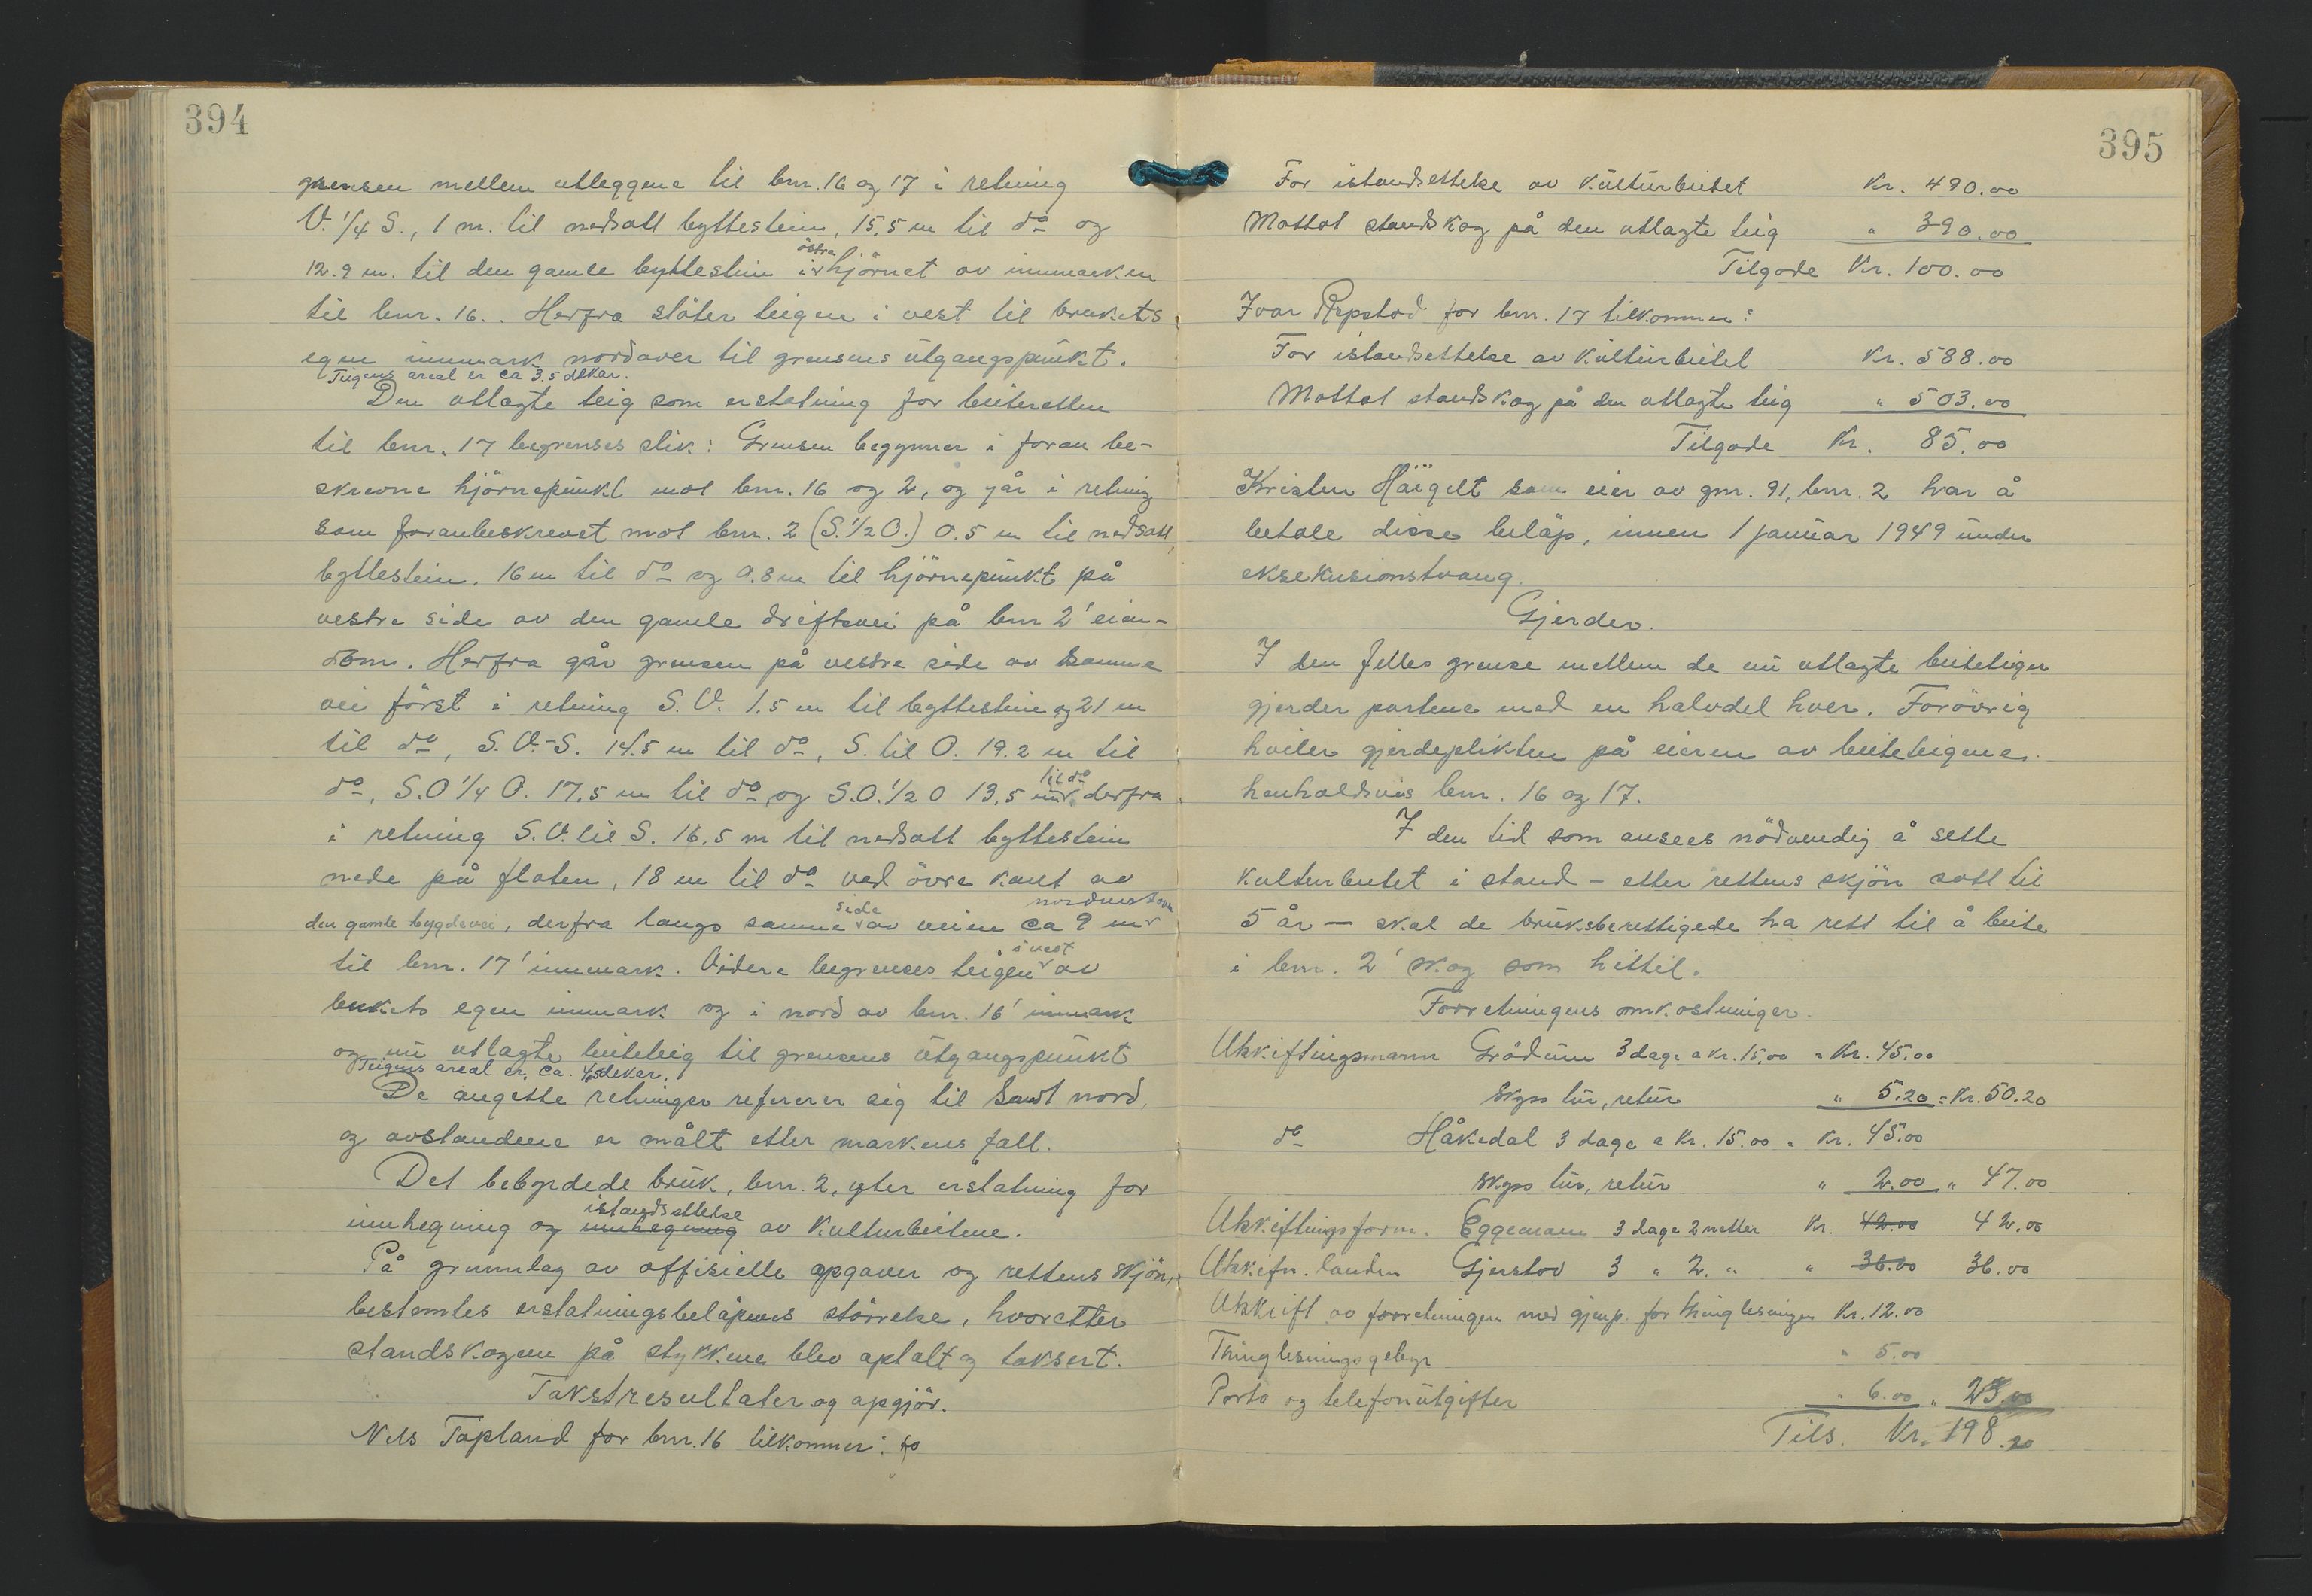 394
grensen mellem utleggene til bnr. 16 og 17 i retning
V. 1/4 S., 1 m. til nedsatt byttestein, 15,5 m til do og
12.9 m. til den gamle byttestein i østre hjørnet av innmarken
til bnr. 16. Herfra støter teigen i vest til brukets
egen innmark nordover til grensens utgangspunkt.
Teigens areal er ca 3.5 dekar.
Den utlagte teig som erstatning for beiteretten
til bnr. 17 begrenses slik: Grensen begynner i foran be-
skrevne hjørnepunkt mot bnr. 16 og 2, og går i retning
som foranbeskrevet mot bnr. 2 (S. 1/2 O.) 0.5 m til nedsatt
byttestein. 16 m til do og 9.8 m til hjørnepunkt på
vestre side av den gamle driftsvei på bnr 2' eien-
dom. Herfra går grensen på vestre side av samme
vei först i retning S. V. 1.5 m til byttestein og 21 m
til do, S. V.-S. 14.5 m til do, S. til O. 19.2 m til
do, S.O 1/4 O. 17.5 m til do og S.O. 1/2 O 13,5 m til do derfra
i retning S. V. til S. 16.5 m til nedsatt byttestein
nede på flaten, 18 m til do ved övre kant av
den gamle bygdevei, derfra langs samme side av veien ca 9 m nordvestover
til bnr. 17' innmark. Videre begrenses teigen i vest av
brukets egen innmark og i nord av bnr. 16' innmark
og nu utlagte beiteteig til grensens utgangspunkt
Teigens areal er ca. 4,5 dekar.
De angitte retninger refererer sig til sant nord,
og avstandene er målt etter markens fall.
Det bebyrdede bruk, bnr. 2, yter erstatning for
innhegning og innhegning istandsettelse av kulturbeitene.
På grunnlag av offisielle opgaver og rettens skjön,
bestemtes erstatningsbelöpenes störrelse, hvoretter
standskogen på stykkene blev optalt og taksert.
Takstresultater og opgjör.
Nils Tapland for bnr. 16 tilkommer: fo
395
For istandsettelse av kulturbeitet Kr. 490.00
Mottat standskog på den utlagte teig " 390.00
Tilgode Kr. 100.00
Ivar Repstad for bnr. 17 tilkommer:
For istandsettelse av kulturbeitet Kr. 588.00
Mottat standskog på den utlagte teig " 503.00
Tilgode Kr. 85.00
Kristen Haugelt som eier av gnr. 91, bnr. 2 har å
betale disse beløp, innen 1 januar 1949 under
eksekusionstvang.
Gjerder.
I den felles grense mellem de nu utlagte beiteteiger
gjerder partene med en halvdel hver. Forövrig
hviler gjerdeplikten på eieren av beiteteigene
henholdsvis bnr. 16 og 17.
I den tid som ansees nödvendig å sette
kulturbeitet i stand – etter rettens skjön satt til
5 år – skal de bruksberettigede ha rett til å beite
i bnr. 2' skog som hittil.
Forretningens omkostninger.
Utskiftingsmann Grödum 3 dage a kr. 15,00 = Kr. 45.00
Skyss tur, retur " 5.20 = Kr. 50.20
do Håkedal 3 dage a Kr. 15.00 = Kr. 45.00
Skyss tur, retur " 2.00 " 47.00
Utskiftingsform. Eggemoen 3 dage 2 netter Kr. 42.00 42.00
Utskifn. Gjerstov 3 " 2. " " 36.00 36.00
Utskrift av forretningen med gjenp. for thinglesningen Kr. 12.00
Thinglesningsgebyr " 5.00
Porto og telefonutgifter " 6.00 " 23.00
Tils. Kr. 198.20